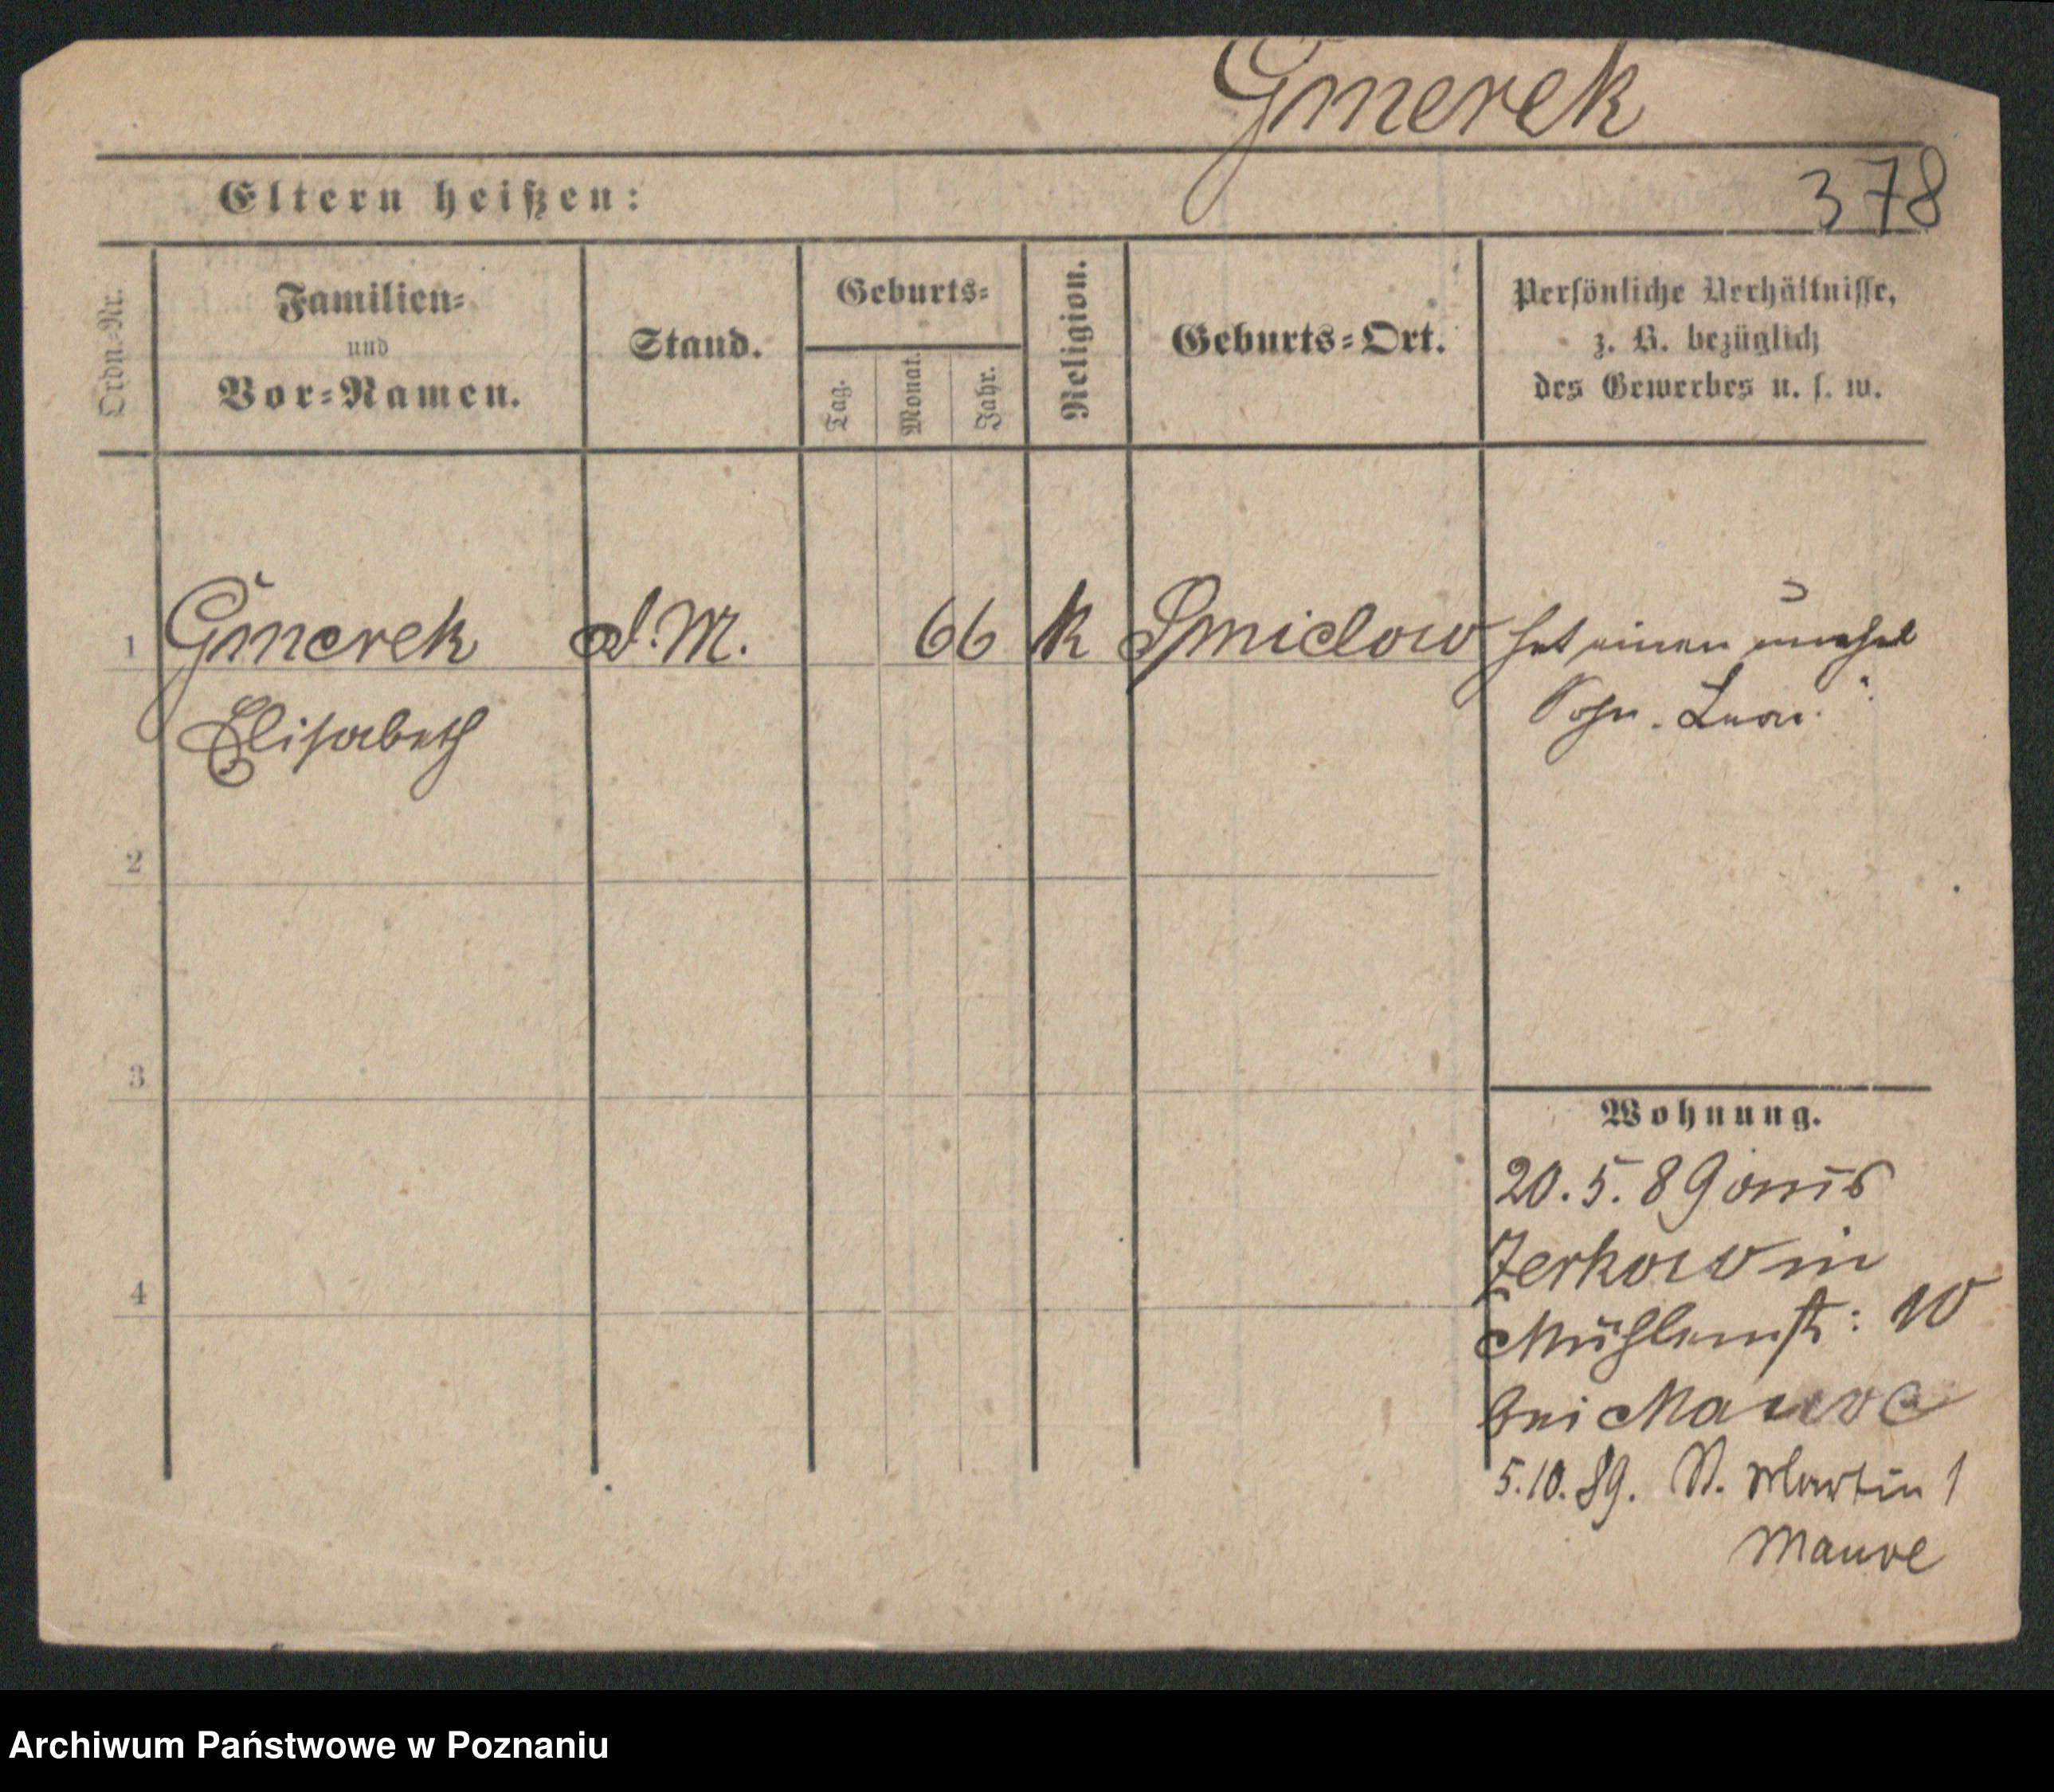 Gmerek
378
Eltern heißen:
Ordn.-Nr.
Familien-
und
Vor-Namen.
Stand.
Geburts-
Tag.
Monat.
Jahr.
Religion.
Geburts-Ort.
Persönliche Verhältnisse,
z. B. bezüglich
des Gewerbes u. s. w.
1
Gmerek
D. M.
66
k
hat einen unehel
Elisabeth
Sohn
2
3
4
Wohnung.
20. 5. 89 aus
Zerkow in
Mühlenst: 10
bei Mauve
5.10.89. St. Martin 1
Mauve
Archiwum Państwowe w Poznaniu